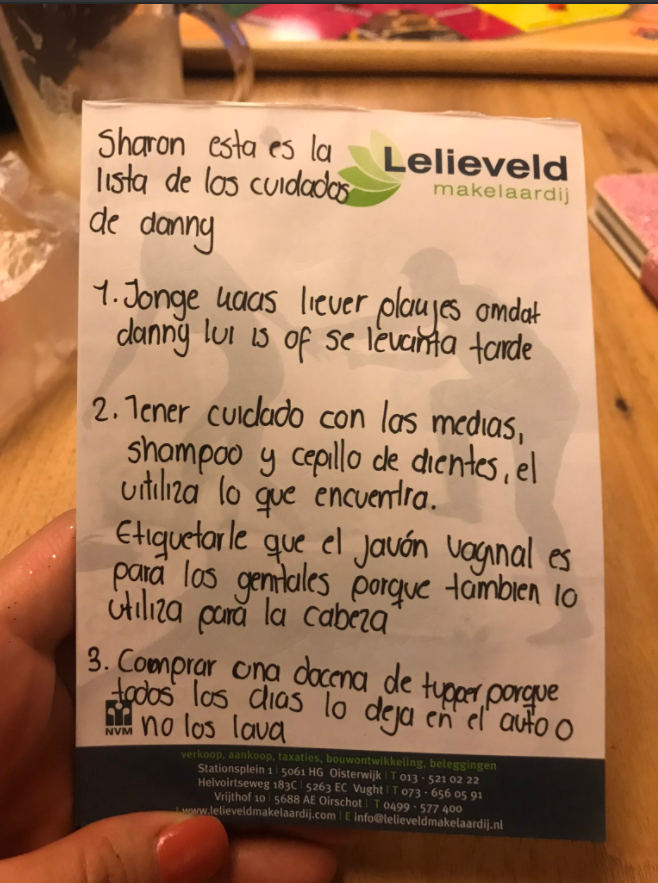 Sharon esta es la
lista de los cuidados
de danny
Lelieveld
makelaardij
1. Jonge kaas liever plakjes omdat
danny lui is of se levanta tarde
2. Tener cuidado con las medias,
shampoo y cepillo de dientes, el
uitiliza lo que encuentra.
Etiquetarle que el javón vaginal es
para los genitales porque tambien lo
utiliza para la cabeza
3. Comprar una docena de tupper porque
todos los dias lo deja en el auto o
no los lava
NVM
verkoop, aankoop, taxaties, bouwontwikkeling, beleggingen
Stationsplein 1 | 5061 HG Oisterwijk | T 013 - 521 02 22
Helvoirtseweg 183C | 5263 EC Vught | T 073 - 656 05 91
Vrijthof 10 | 5688 AE Oirschot | T 0499 - 577 400
www.lelieveldmakelaardij.com | E info@lelieveldmakelaardij.nl